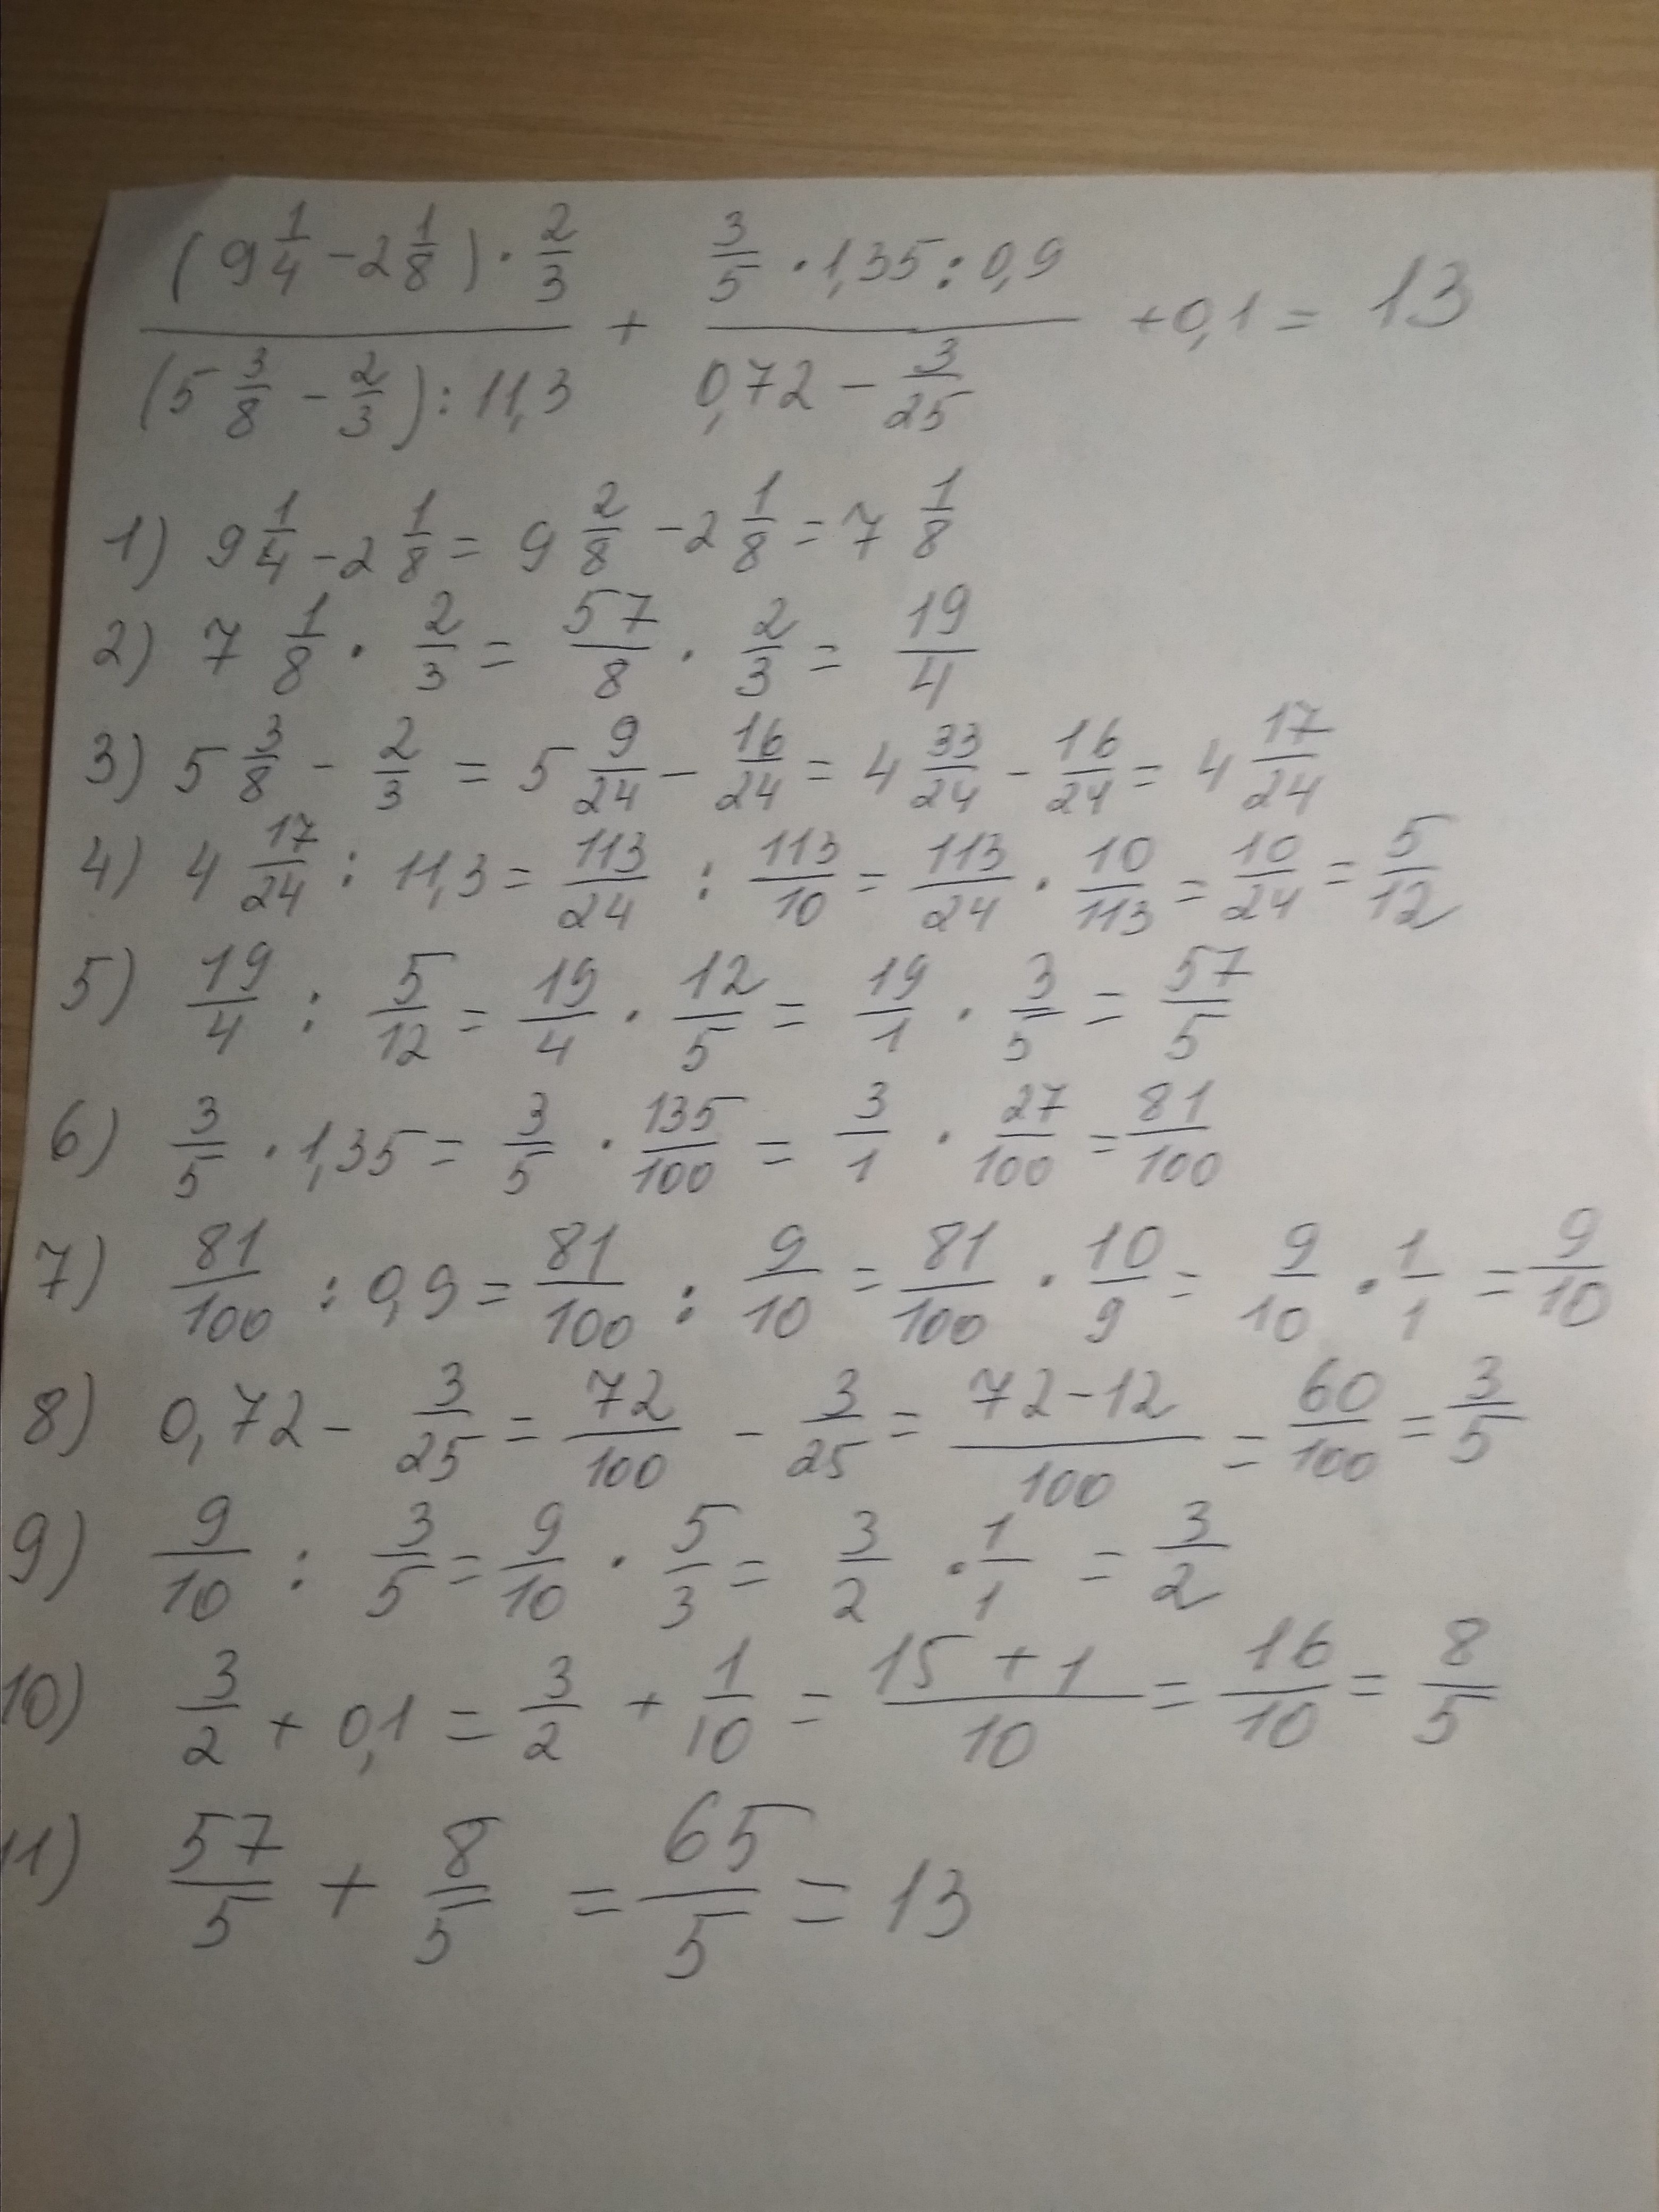 (9 1/4 - 2 1/8) · 2/3 / (5 3/8 - 2/3) : 11,3 + 3/5 · 1,35 : 0,9 / 0,72 - 3/25 + 0,1 = 13
1) 9 1/4 - 2 1/8 = 9 2/8 - 2 1/8 = 7 1/8
2) 7 1/8 · 2/3 = 57/8 · 2/3 = 19/4
3) 5 3/8 - 2/3 = 5 9/24 - 16/24 = 4 33/24 - 16/24 = 4 17/24
4) 4 17/24 : 11,3 = 113/24 : 113/10 = 113/24 · 10/113 = 10/24 = 5/12
5) 19/4 : 5/12 = 19/4 · 12/5 = 19/1 · 3/5 = 57/5
6) 3/5 · 1,35 = 3/5 · 135/100 = 3/1 · 27/100 = 81/100
7) 81/100 : 0,9 = 81/100 : 9/10 = 81/100 · 10/9 = 9/10 · 1/1 = 9/10
8) 0,72 - 3/25 = 72/100 - 3/25 = 72-12/100 = 60/100 = 3/5
9) 9/10 : 3/5 = 9/10 · 5/3 = 3/2 · 1/1 = 3/2
10) 3/2 + 0,1 = 3/2 + 1/10 = 15+1/10 = 16/10 = 8/5
11) 57/5 + 8/5 = 65/5 = 13